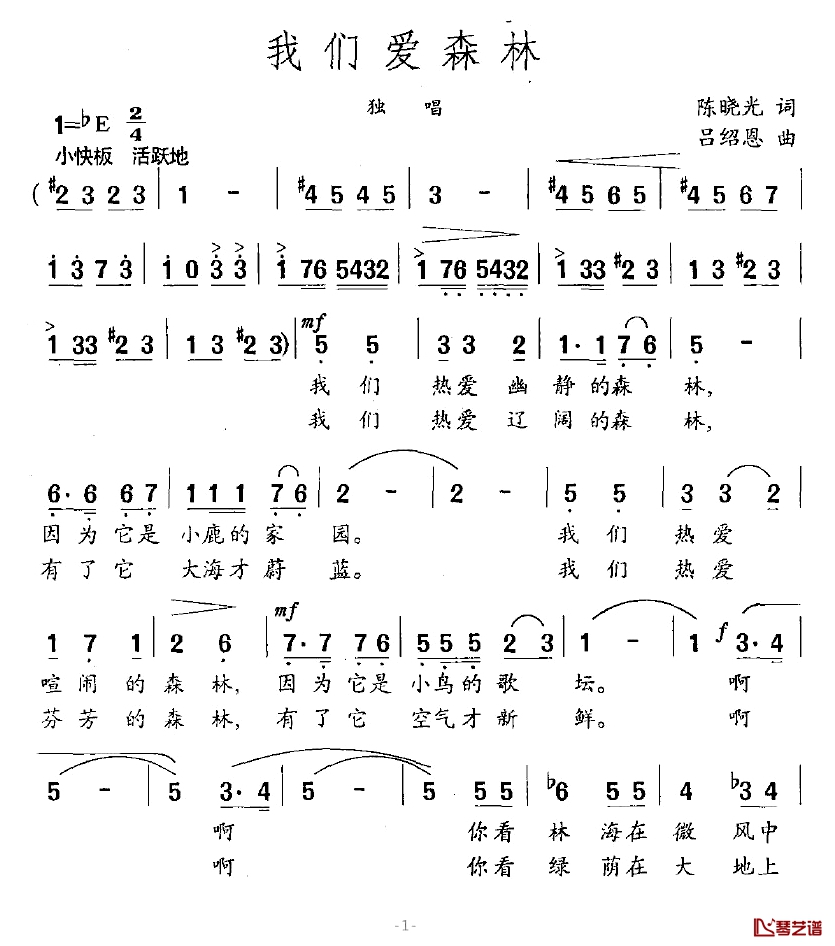 我们爱森林
独 唱
陈晓光 词
吕绍恩 曲
1=♭E 2/4
小快板 活跃地
(#2 3 2 3 | 1 - | #4 5 4 5 | 3 - | #4 5 6 5 | #4 5 6 7 |
1 3 7 3 | 1 0 3 3 | 1 76 5432 | 1 76 5432 | 1 33 #2 3 | 1 3 #2 3 |
1 33 #2 3 | 1 3 #2 3) | mf 5 5 | 3 3 2 | 1· 1 7 6 | 5 - |
我 们 热爱 幽 静的森 林,
我 们 热爱 辽 阔的森 林,
6· 6 6 7 | 1 1 1 7 6 | 2 - | 2 - | 5 5 | 3 3 2 |
因为它是 小鹿的家 园。 我 们 热 爱
有了它 大海才蔚 蓝。 我 们 热 爱
1 7 1 | 2 6 | mf 7· 7 7 6 | 5 5 5 2 3 | 1 - | 1 f 3· 4 |
喧闹的森林, 因为它是 小鸟的歌 坛。 啊
芬芳的森林, 有了它 空气才新 鲜。 啊
5 - | 5 3· 4 | 5 - | 5 5 5 | ♭6 5 5 | 4 ♭3 4 |
啊 你看 林 海在微 风中
啊 你看 绿 荫在大 地上
-1-
琴艺谱